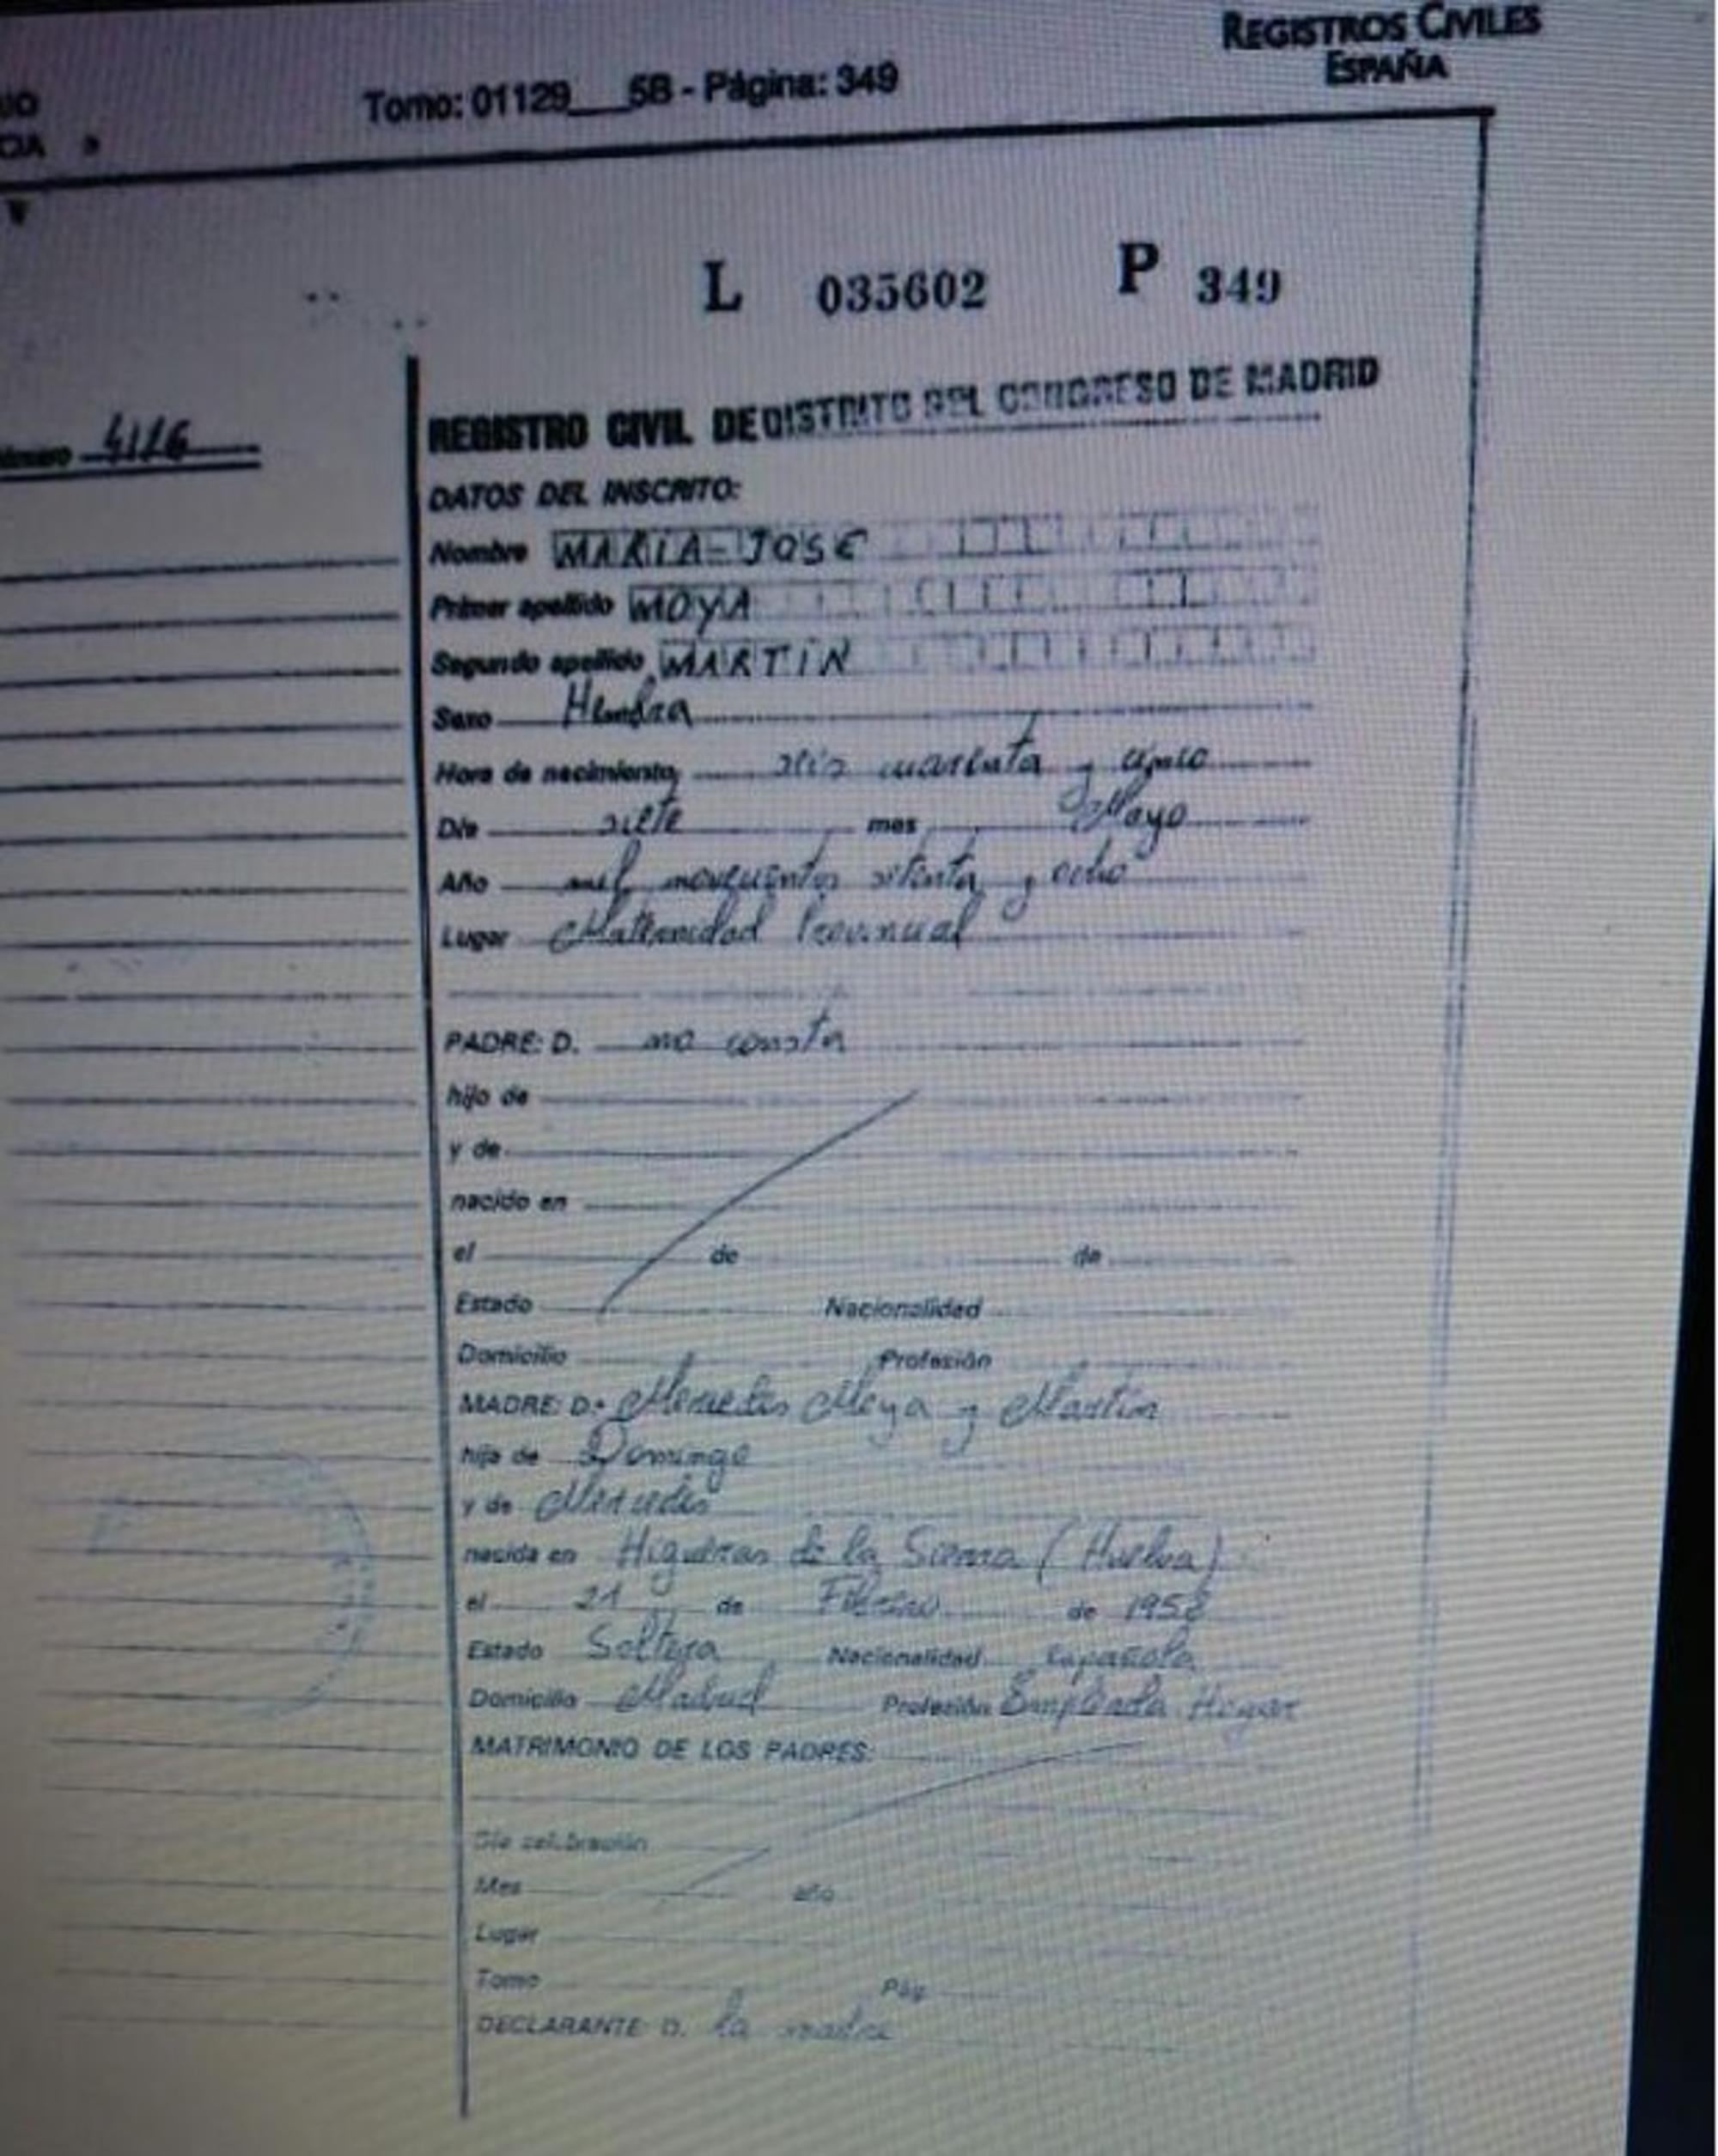 REGISTROS CIVILES
ESPAÑA
Tomo: 01129___5B - Página: 349
L 035602 P 349
REGISTRO CIVIL DE DISTRITO DEL CONGRESO DE MADRID
4116
DATOS DEL INSCRITO:
Nombre MARIA-JOSE
Primer apellido MOYA
Segundo apellido MARTIN
Sexo Hembra
Hora de nacimiento seis cuarenta y cinco
Día siete mes Mayo
Año mil novecientos setenta y ocho
Lugar Maternidad Provincial
PADRE: D. no consta
hijo de
y de
nacido en
el de de
Estado Nacionalidad
Domicilio Profesión
MADRE: D.ª Mercedes Moya y Martín
hija de Domingo
y de Mercedes
nacida en Higueras de la Sierra (Huelva)
el 21 de Febrero de
Estado Soltera Nacionalidad española
Domicilio Madrid Profesión Empleada Hogar
MATRIMONIO DE LOS PADRES:
Día celebración
Mes año
Lugar
Tomo Pág.
DECLARANTE: D. la madre